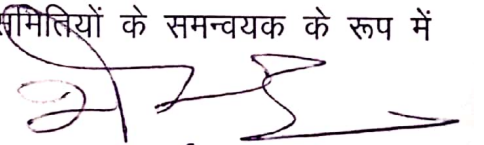 समितियों के समन्वयक के रूप में